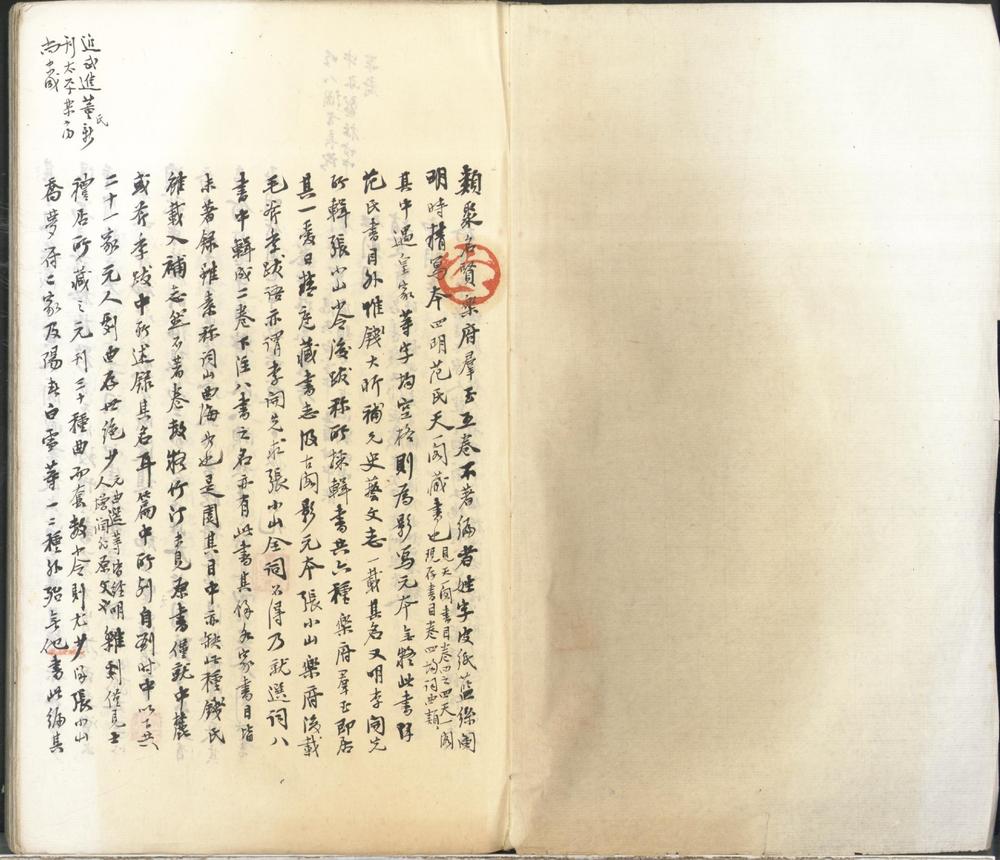 類聚名賢樂府羣玉五卷不著編者姓字皮紙藍絲闌
明時精寫本四明范氏天一閣藏書也見天一閣書目卷四之四天一閣現存書目卷四均詞曲類
其中遇皇家等字均空格則爲影寫元本無疑此書除
范氏書目外惟錢大昕補元史藝文志一載其名又明李開先
所輯張小山小令後跋稱所採輯書共六種樂府羣玉即居
其一愛日精廬藏書志汲古閣影元本張小山樂府後載
毛斧季跋語亦謂李開先求張小山全詞不得乃就選詞八
書中輯成二卷下注八書之名亦有此書其餘各家書目皆
未著錄雖素稱詞山曲海如也是園其目中亦缺此種錢氏
雖載入補志然不著卷數疑竹汀未見原書僅就中麓
或斧季跋中所述錄其名耳篇中所列自劉時中以下共
二十一家元人劇曲存世絕少元曲選等皆經明人增潤非原文也雜劇僅見士
禮居所藏之元刊三十種曲而套數小令則尤少除張小山
喬夢符二家及陽春白雪等一二種外殆無他書此編其
近武進董氏新
刊太平樂府
尚 歲